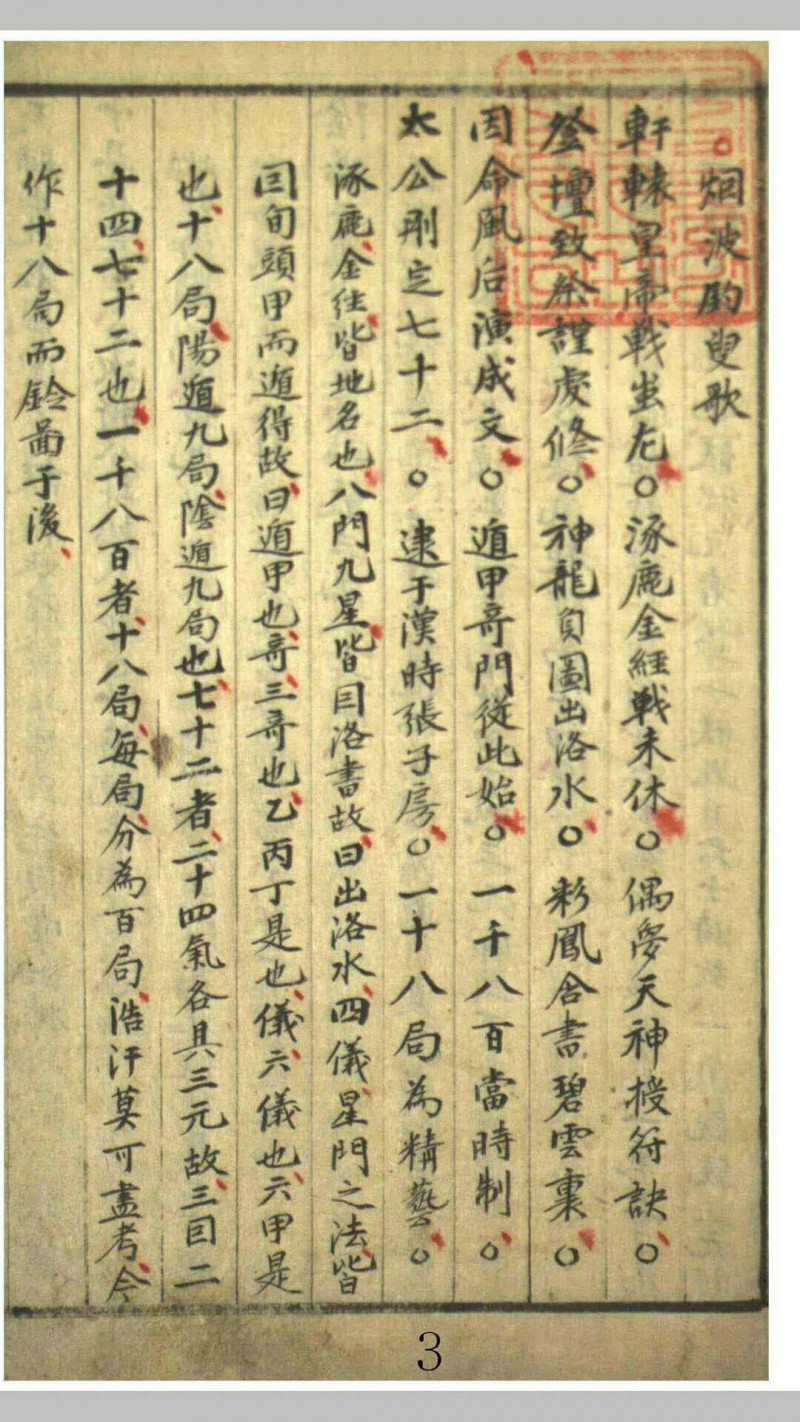 。烟波釣叟歌
軒轅皇帝戰蚩尤○涿鹿金經戰未休○偶夢天神授符訣○
登壇致祭謹虔修○神龍負圖出洛水○彩鳳含書碧雲裏○
因命風后演成文○遁甲竒門從此始○一千八百當時制○
太公刪定七十二○逮于漢時張子房○一十八局為精藝○
涿鹿金经皆地名也八門九星皆囙洛書故曰出洛水四儀星門之法皆
囙旬頭甲而遁得故曰遁甲也竒三竒也乙丙丁是也儀六儀也六甲是
也十八局陽遁九局陰遁九局也七十二者二十四氣各具三元故三囙二
十四七十二也一千八百者十八局每局分為百局浩汗莫可盡考今
作十八局而鈴啚于後
3